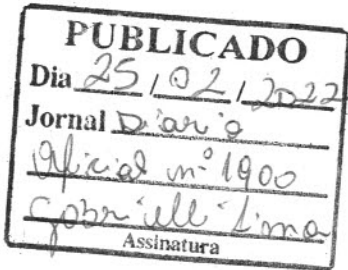 PUBLICADO
Dia 25/02/2022
Jornal Diario
Oficial nº 1900
Gabrielle Lima
Assinatura